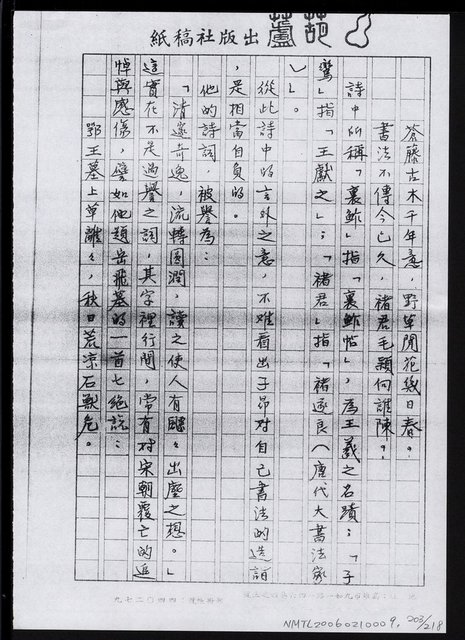 葫蘆出版社稿紙
蒼藤古木千年意，野草閒花幾日春？
書法不傳今已久，褚君毛穎向誰陳？
詩中所稱「裹鮓」指「裹鮓帖」，為王羲之名蹟；「子
鸞」指「王獻之」；「褚君」指「褚遂良（唐代大書法家
）」。
從此詩中的言外之意，不難看出子昂对自己書法的造詣
，是相當自負的。
他的詩詞，被譽為：
「清邃奇逸，流轉圓潤，讀之使人有飄々出塵之想。」
這實在不是過譽之詞，其字裡行間，常有对宋朝覆亡的追
悼與感傷，譬如他題岳飛墓的一首七絕説：
鄂王墓上草離々，秋日荒凉石獸危。
NMTL20060210009, 203/218